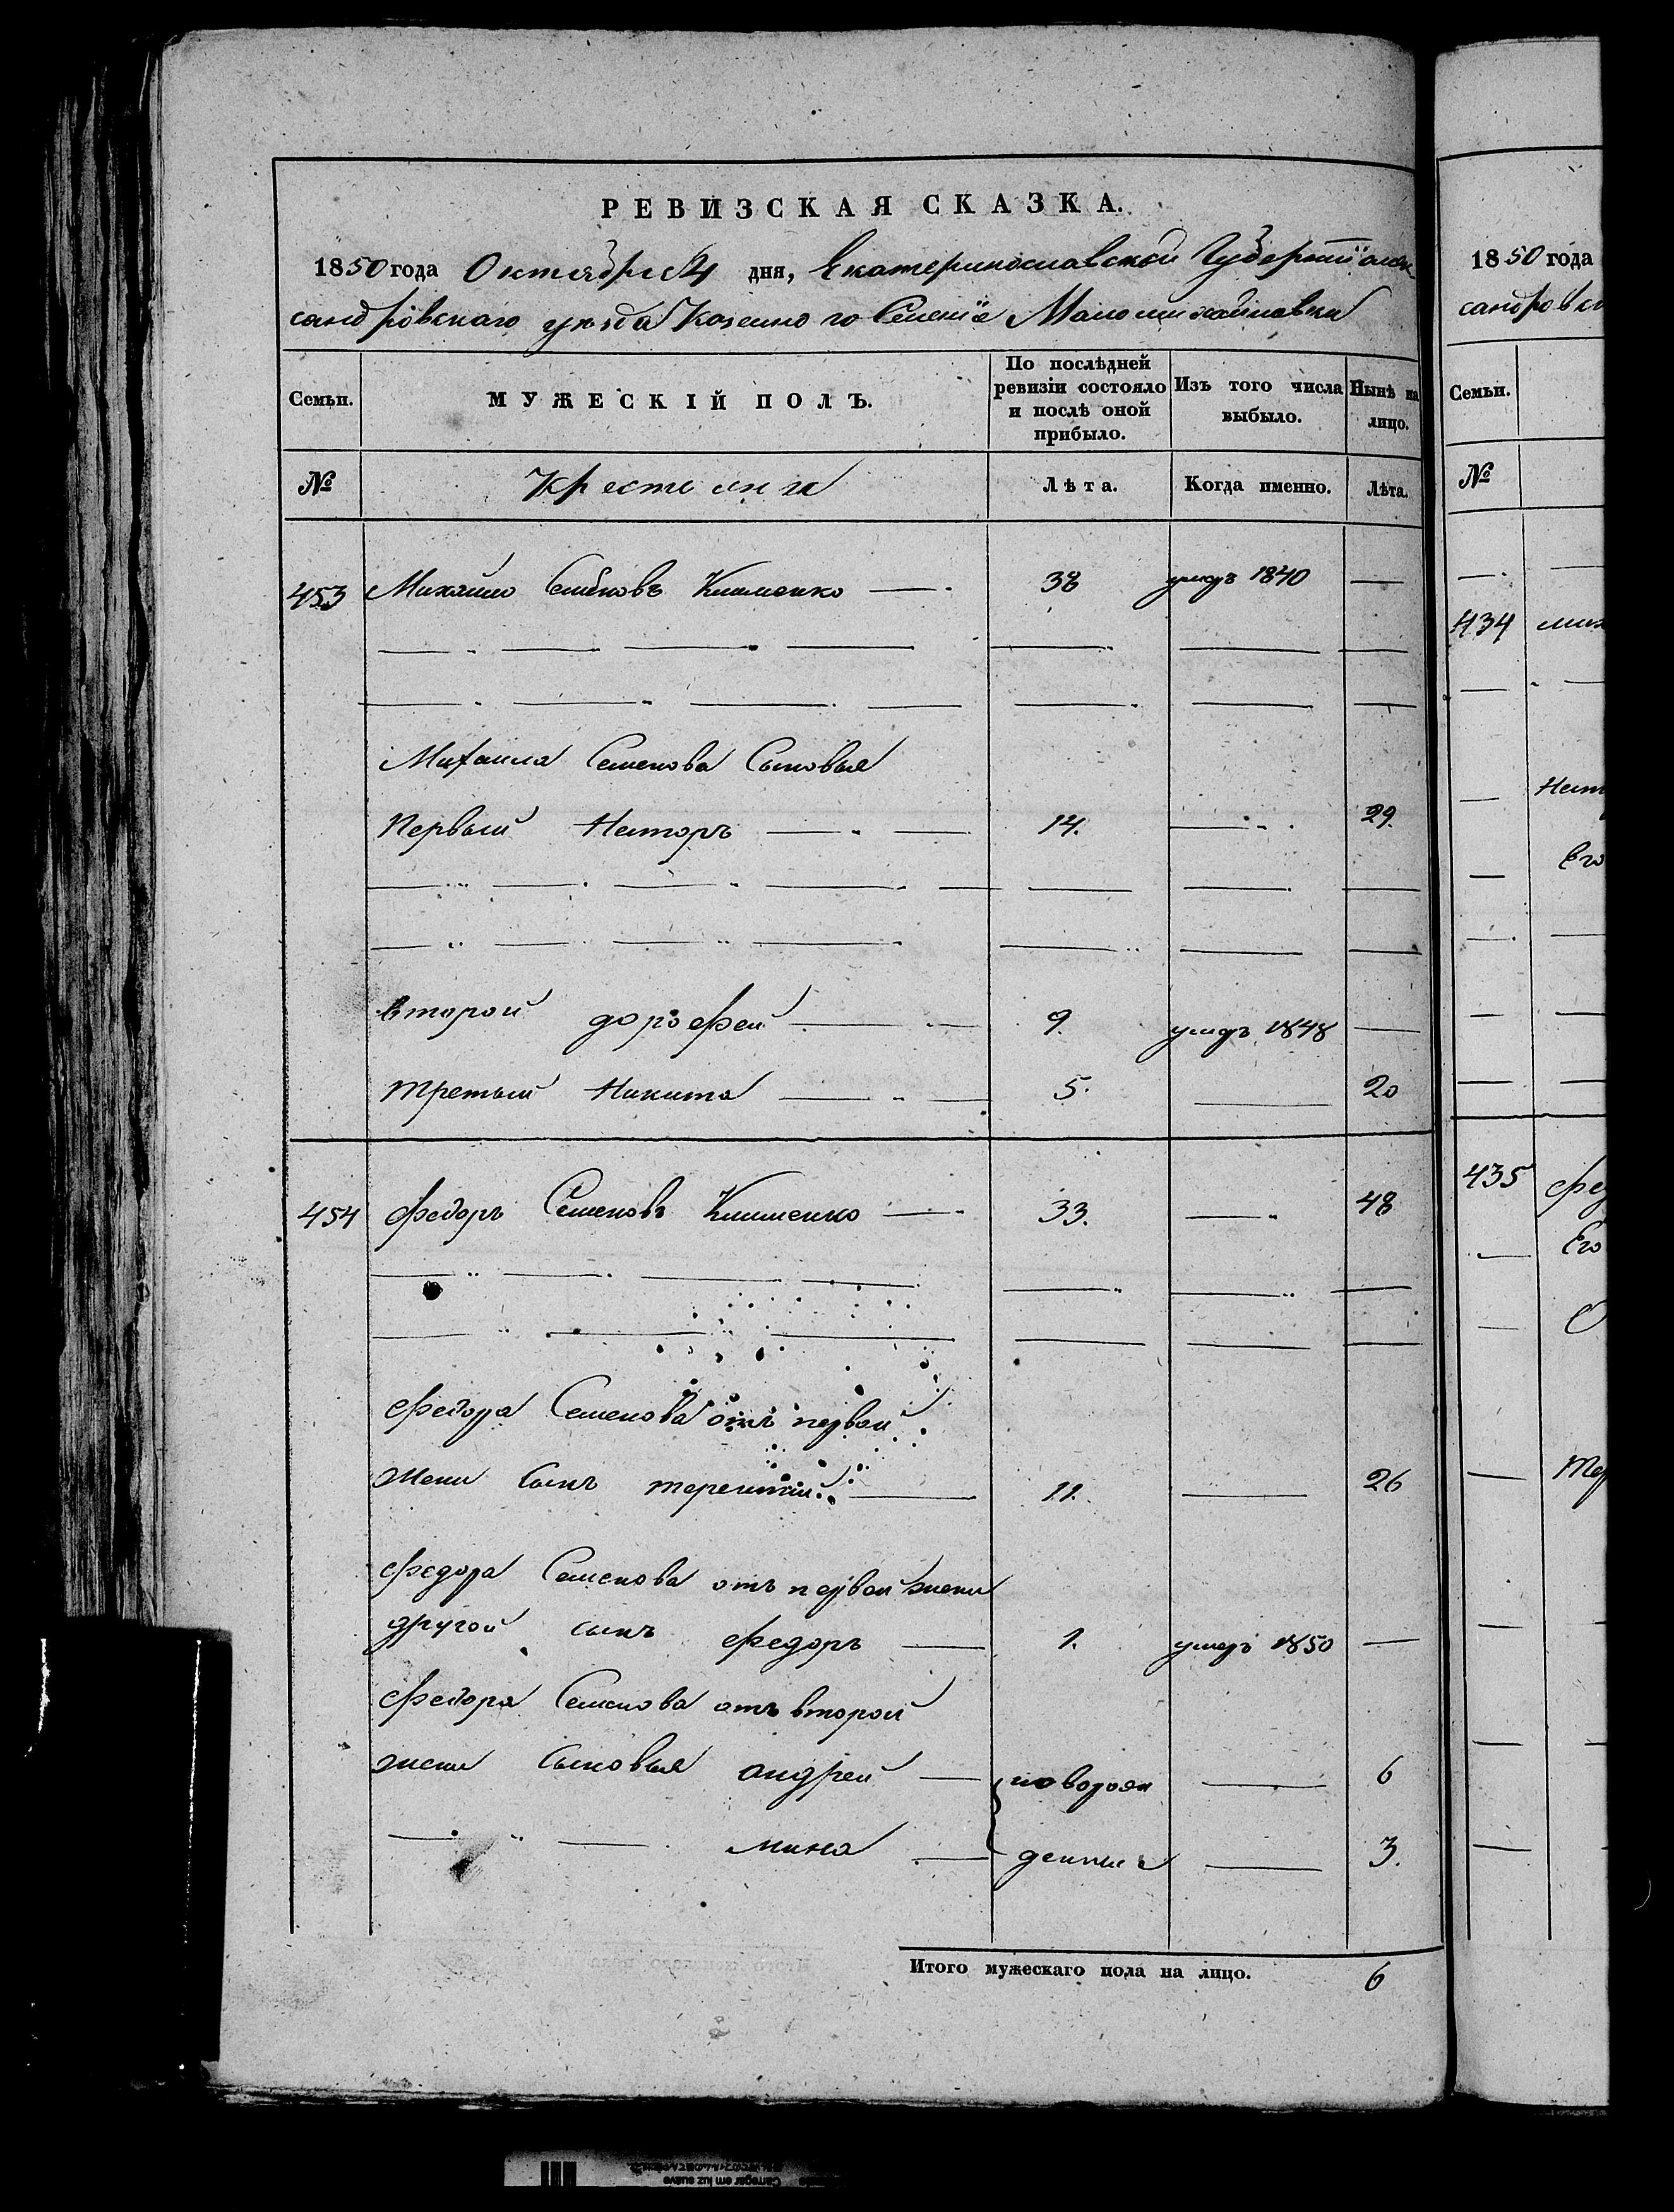 РЕВИЗСКАЯ СКАЗКА.
1850 года Октября 4 дня, Екатеринославской Губернии Алек-
сандровскаго уезда Казенного Селенiя Маломихайловки
Семьи. МУЖЕСКІЙ ПОЛЪ. По послѣдней ревизіи состояло и послѣ оной прибыло. Изъ того числа выбыло. Нынѣ на лицо.
№ Крестьяне Лѣта. Когда именно. Лѣта.
453 Михайло Семеновъ Клименко 38 умръ 1840
Михаила Семенова Сыновья
Первый Несторъ 14. 29.
второй дорофей 9. умръ 1848
третый Никита 5. 20
454 федоръ Семеновъ Клименко 33. 48
федора Семенова отъ первой
жены сынъ терентiй 11. 26
федора Семенова отъ первой жены
другой сынъ федоръ 1. умеръ 1850
федора Семенова отъ второй
жены сыновья андрей новорож 6
мина денные 3.
Итого мужескаго пола на лицо. 6
1850 года
сандровск
Семьи.
№
434 мих
Нест
Его
435 фед
Его
Тер